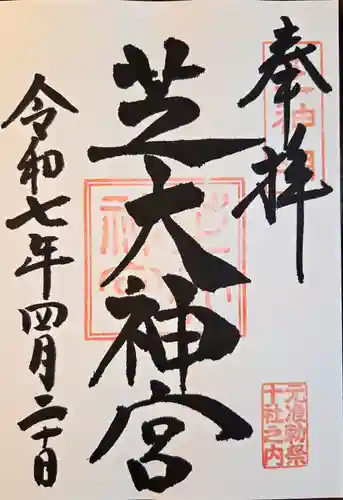 奉拝
芝大神宮
令和七年四月二十日
元准勅祭
十社之内